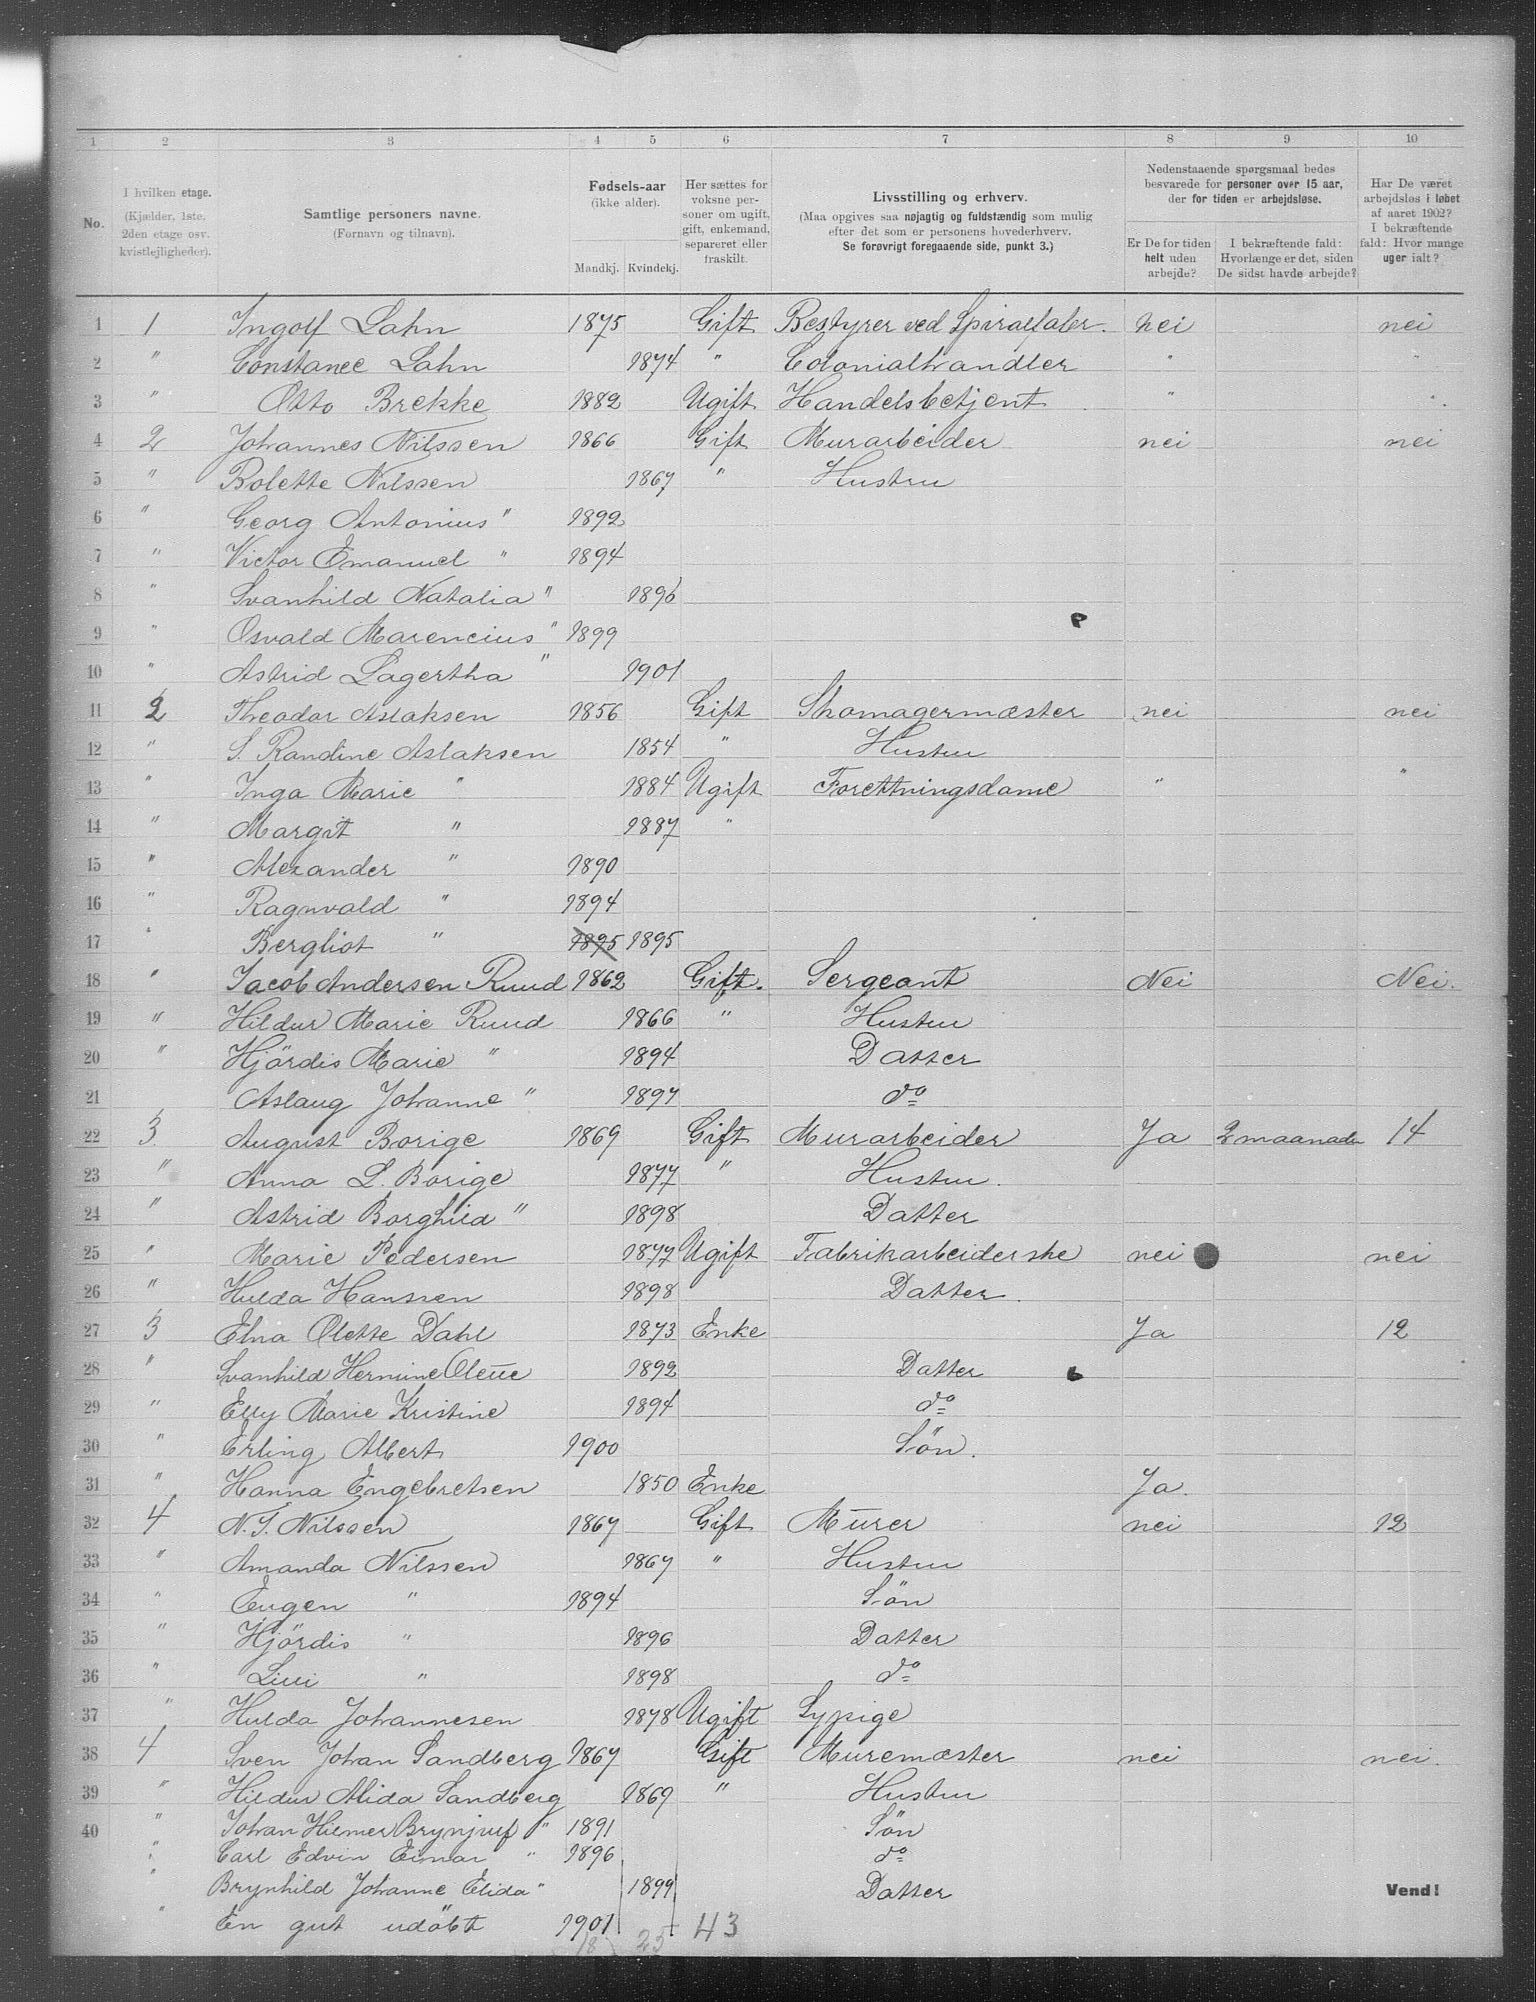 1 2 3 4 5 6 7 8 9 10
No.
I hvilken etage.
(Kjælder, 1ste, 2den etage osv. kvistlejligheder).
Samtlige personers navne.
(Fornavn og tilnavn).
Fødsels-aar
(ikke alder).
Mandkj. Kvindekj.
Her sættes for voksne personer om ugift, gift, enkemand, separeret eller fraskilt.
Livsstilling og erhverv.
(Maa opgives saa nøjagtig og fuldstændig som mulig efter det som er personens hovederhverv.
Se forøvrigt foregaaende side, punkt 3.)
Nedenstaaende spørgsmaal bedes besvarede for personer over 15 aar, der for tiden er arbejdsløse.
Er De for tiden helt uden arbejde?
I bekræftende fald: Hvorlænge er det, siden De sidst havde arbejde?
Har De været arbejdsløs i løbet af aaret 1902? I bekræftende fald: Hvor mange uger ialt?
1 1 Ingolf Lahn 1875 Gift Bestyrer ved nei nei
2 " Constance Lahn 1874 " Colonialhandler " "
3 " Otto Brekke 1882 Ugift Handelsbetjent " "
4 2 Johannes Nilssen 1866 Gift Murarbeider nei nei
5 " Bolette Nilssen 1867 " Hustru
6 " Georg Antonius " 1892
7 " Victor Emanuel " 1894
8 " Svanhild Natalia " 1896
9 " Osvald Marencius " 1899
10 " Astrid Lagertha " 1901
11 2 Theodor Aslaksen 1856 Gift Skomagermæster nei nei
12 " S. Randine Aslaksen 1854 " Hustru
13 " Inga Marie " 1884 Ugift Forettningsdame " "
14 " Margit " 1887 "
15 " Alexander " 1890
16 " Ragnvald " 1894
17 " Bergliot " 1895 1895
18 " Jacob Andersen Ruud 1862 Gift. Sergeant Nei Nei.
19 " Hildur Marie Ruud 1866 " Hustru
20 " Hjördis Marie " 1894 Datter
21 Aslaug Johanne " 1897 do
22 3 August Borige 1869 Gift Murarbeider Ja 2 maaneder 14
23 " Anna L. Borige 1877 " Hustru.
24 " Astrid Borghild " 1898 Datter
25 " Marie Pedersen 1877 Ugift Fabrikarbeiderske nei nei
26 " Hulda Hanssen 1898 Datter.
27 3 Elna Olette Dahl 1873 Enke Ja 12
28 " Svanhild Hermine 1892 Datter
29 " Elly Marie Kristine 1894 do
30 " Erling Albert 1900 Sön.
31 " Hanna Engebretsen 1850 Enke Ja.
32 4 N. J. Nilssen 1867 Gift Murer nei 12
33 " Amanda Nilssen 1867 " Hustru
34 " Eugen " 1894 Sön
35 " Hjördis " 1896 Datter
36 " Livi " 1898 do
37 " Hulda Johannesen 1878 Ugift Sypige
38 4 Sven Johan Sandberg 1867 Gift Muremæster nei nei.
39 " Hildur Alida Sandberg 1869 " Hustru
40 " Johan Hilmer Brynjulf " 1891 Sön
" Carl Edvin Einar " 1896 do
" Brynhild Johanne Elida " 1899 Datter
" En gut udöbt 1901
18 25 43
Vend!